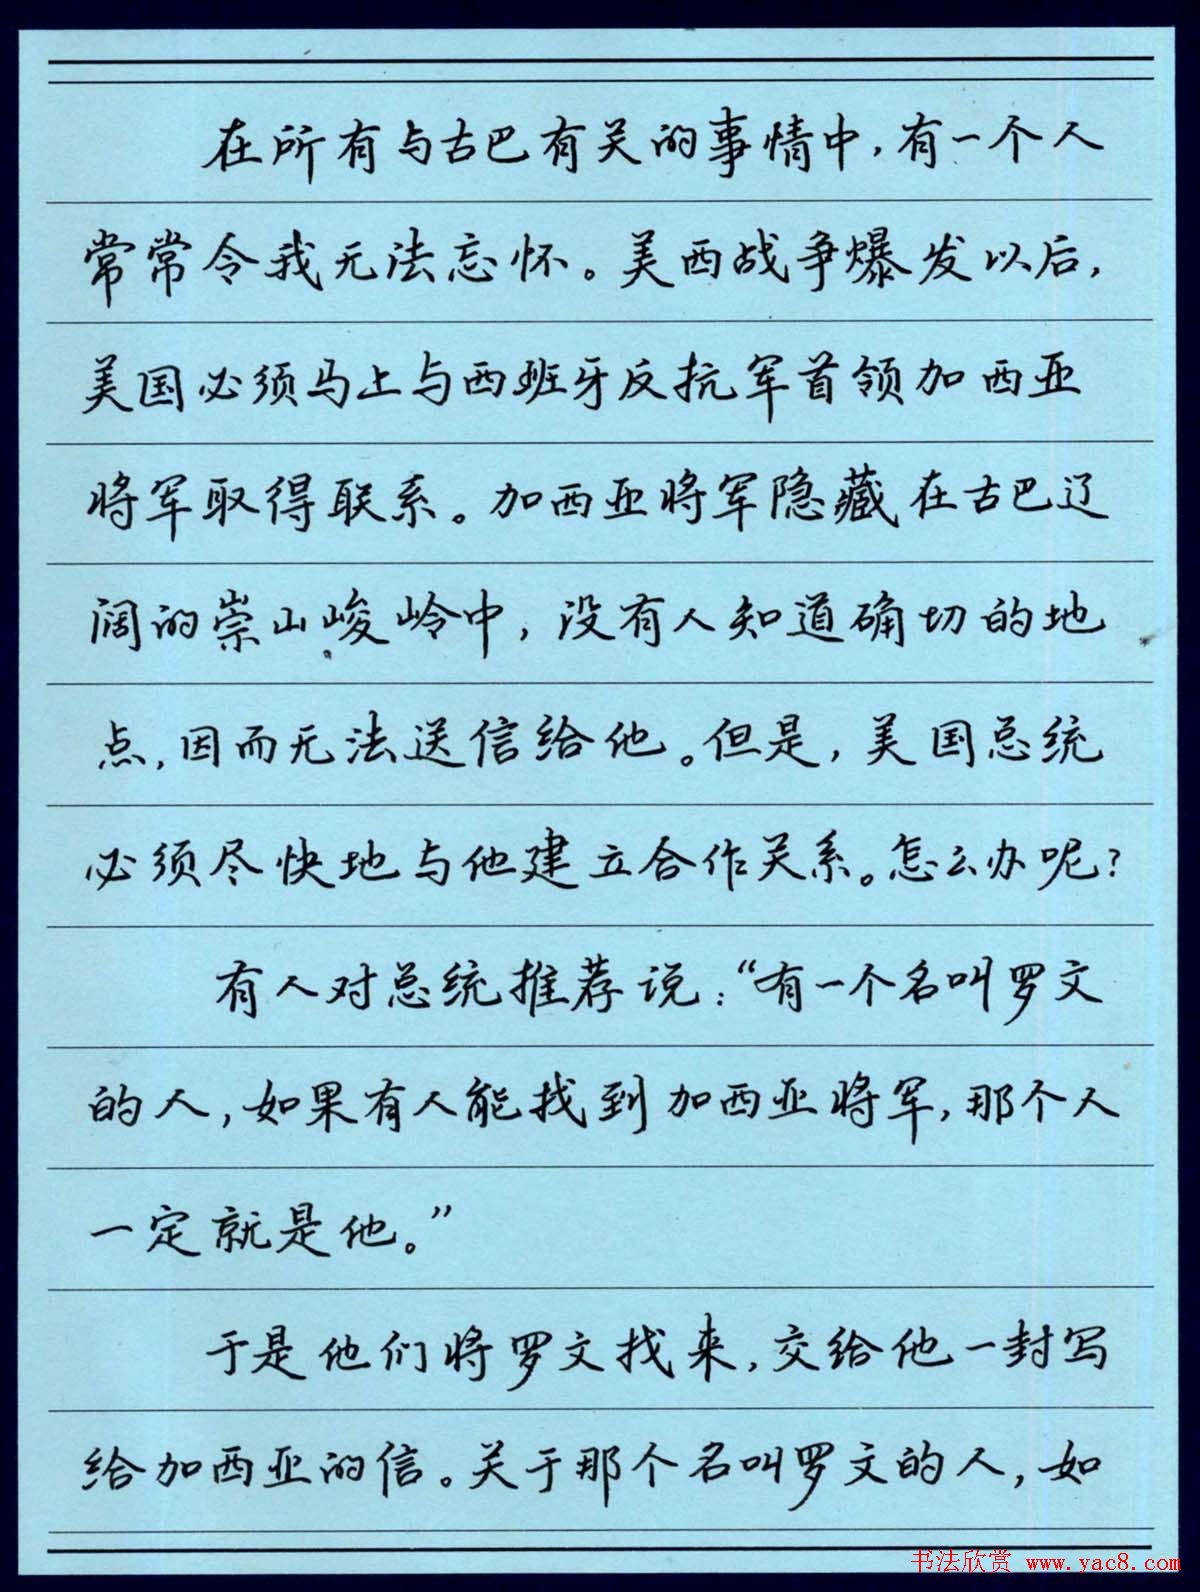 在所有与古巴有关的事情中,有一个人
常常令我无法忘怀。美西战争爆发以后,
美国必须马上与西班牙反抗军首领加西亚
将军取得联系。加西亚将军隐藏在古巴辽
阔的崇山峻岭中,没有人知道确切的地
点,因而无法送信给他。但是,美国总统
必须尽快地与他建立合作关系。怎么办呢?
有人对总统推荐说:“有一个名叫罗文
的人,如果有人能找到加西亚将军,那个人
一定就是他。”
于是他们将罗文找来,交给他一封写
给加西亚的信。关于那个名叫罗文的人,如
书法欣赏 www.yac8.com